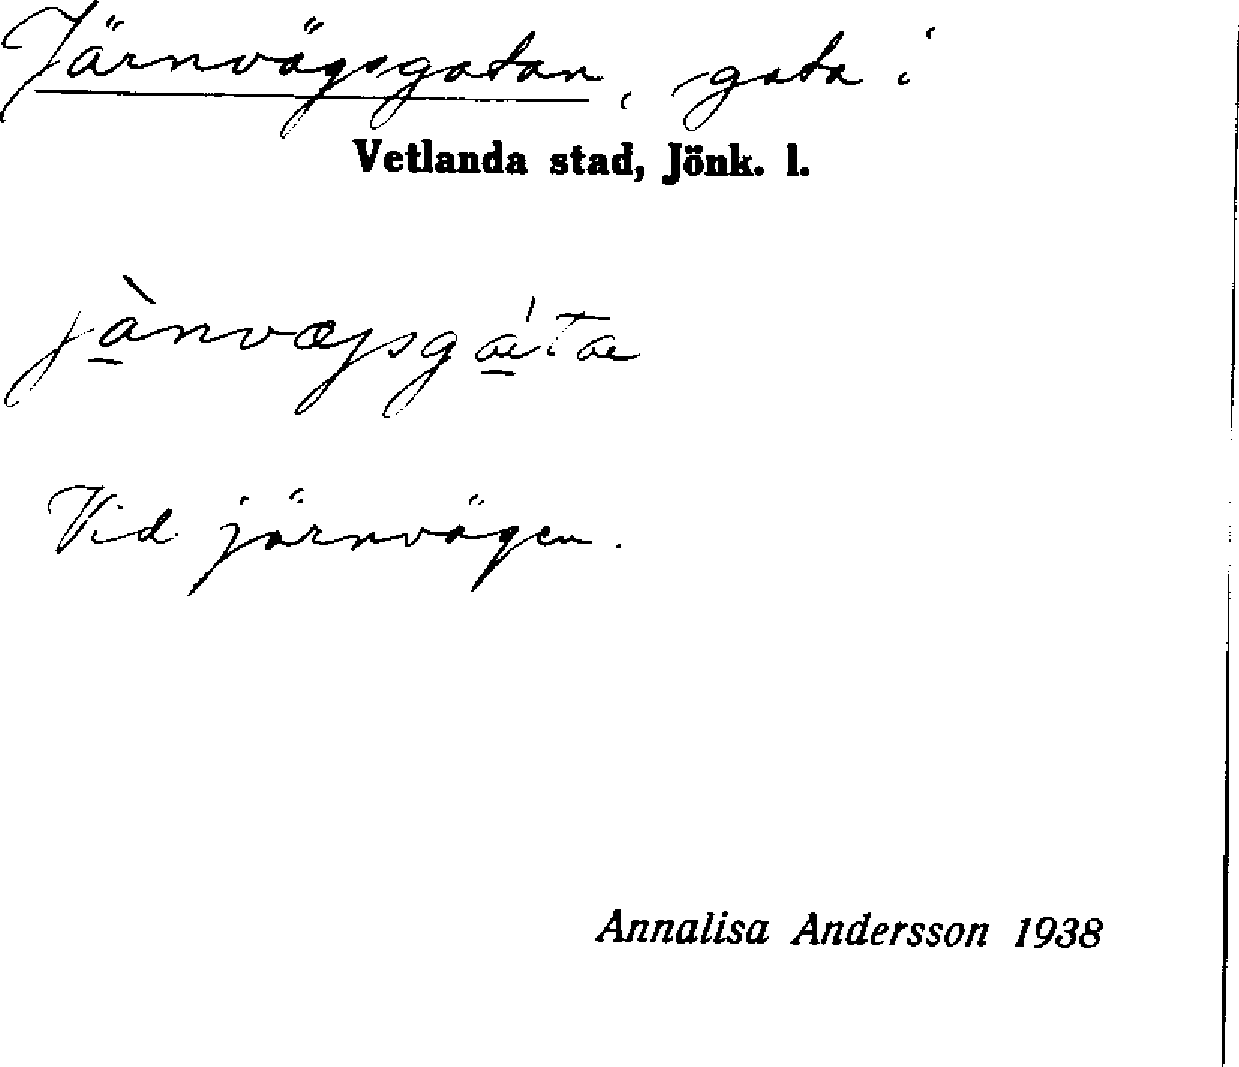 Järnvägsgatan, gata i
Vetlanda stad, Jönk. l.
jànvæjsgáta
Vid järnvägen.
Annalisa Andersson 1938